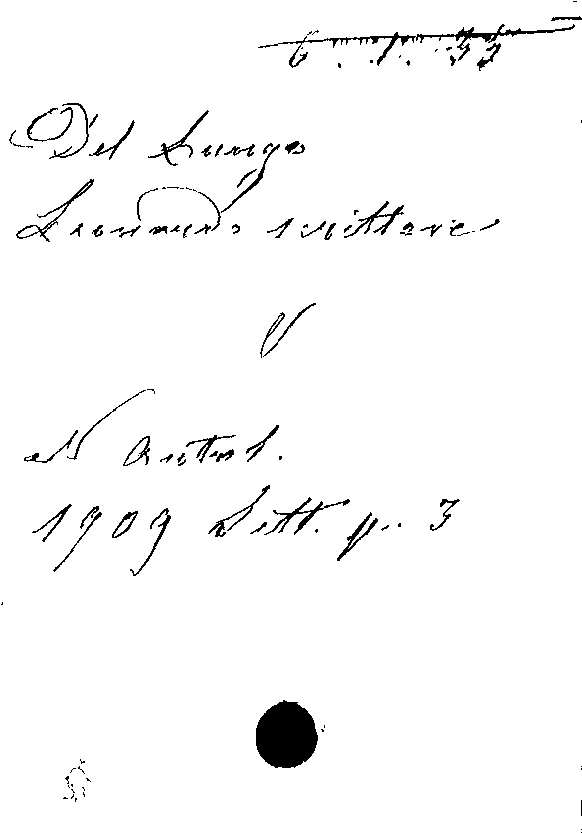 6. 1. 33
Del Lungo
Leonardo scrittore
V
N Antol.
1909 Sett. p. 3